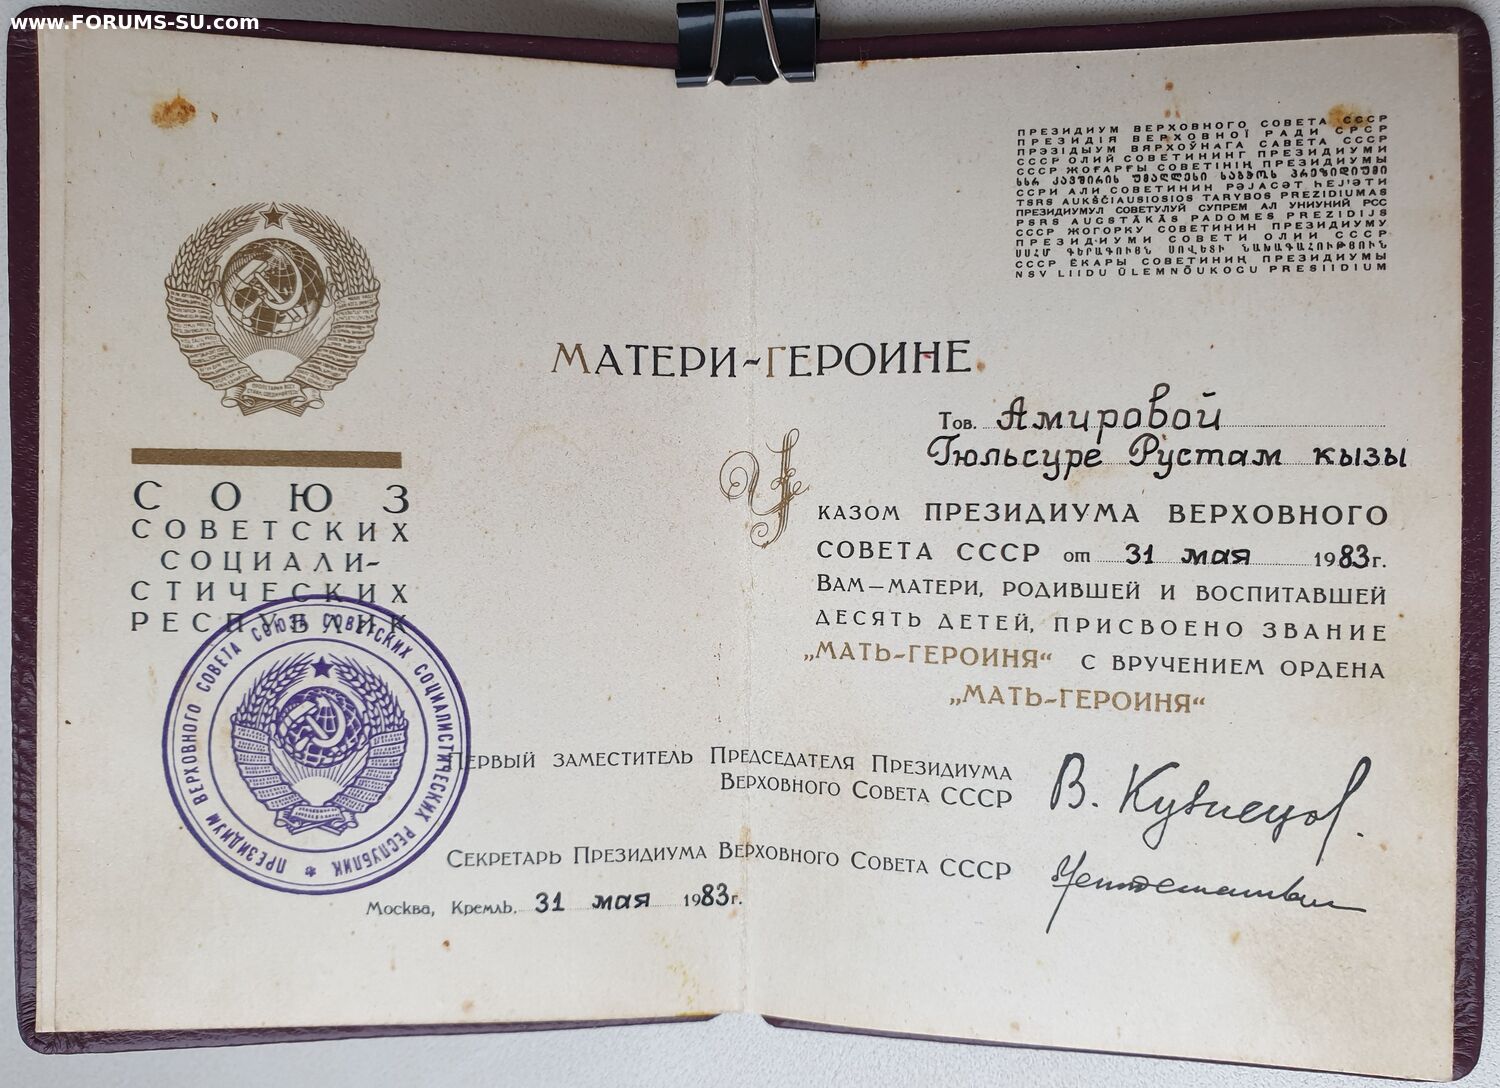 www.FORUMS-SU.com
СОЮЗ
СОВЕТСКИХ
СОЦИАЛИ-
СТИЧЕСКИХ
РЕСПУБЛИК
ПРЕЗИДИУМ ВЕРХОВНОГО СОВЕТА СОЮЗА СОВЕТСКИХ СОЦИАЛИСТИЧЕСКИХ РЕСПУБЛИК
ПРЕЗИДИУМ ВЕРХОВНОГО СОВЕТА СССР
ПРЕЗИДІЯ ВЕРХОВНОЇ РАДИ СРСР
ПРЭЗІДЫУМ ВЯРХОЎНАГА САВЕТА СССР
СССР ОЛИЙ СОВЕТИНИНГ ПРЕЗИДИУМИ
СССР ЖОҒАРҒЫ СОВЕТІНІҢ ПРЕЗИДИУМЫ
სსრ კავშირის უმაღლესი საბჭოს პრეზიდიუმი
ССРИ АЛИ СОВЕТИНИН РӘЈАСӘТ ҺЕЈ'ӘТИ
TSRS AUKŠČIAUSIOSIOS TARYBOS PREZIDIUMAS
ПРЕЗИДИУМУЛ СОВЕТУЛУЙ СУПРЕМ АЛ УНИУНИЙ РСС
PSRS AUGSTĀKĀS PADOMES PREZIDIJS
СССР ЖОГОРКУ СОВЕТИНИН ПРЕЗИДИУМУ
ПРЕЗИДИУМИ СОВЕТИ ОЛИИ СССР
ՍՍՀՄ ԳԵՐԱԳՈՒՅՆ ՍՈՎԵՏԻ ՆԱԽԱԳԱՀՈՒԹՅՈՒՆ
СССР ЁКАРЫ СОВЕТИНИҢ ПРЕЗИДИУМЫ
NSV LIIDU ÜLEMNÕUKOGU PRESIIDIUM
МАТЕРИ-ГЕРОИНЕ
Тов. Амировой
Гюльсуре Рустам кызы
УКАЗОМ ПРЕЗИДИУМА ВЕРХОВНОГО
СОВЕТА СССР от 31 мая 1983 г.
ВАМ—МАТЕРИ, РОДИВШЕЙ И ВОСПИТАВШЕЙ
ДЕСЯТЬ ДЕТЕЙ, ПРИСВОЕНО ЗВАНИЕ
„МАТЬ-ГЕРОИНЯ“ С ВРУЧЕНИЕМ ОРДЕНА
„МАТЬ-ГЕРОИНЯ“
ПЕРВЫЙ ЗАМЕСТИТЕЛЬ ПРЕДСЕДАТЕЛЯ ПРЕЗИДИУМА
ВЕРХОВНОГО СОВЕТА СССР
В. Кузнецов.
СЕКРЕТАРЬ ПРЕЗИДИУМА ВЕРХОВНОГО СОВЕТА СССР
Москва, Кремль. 31 мая 1983 г.